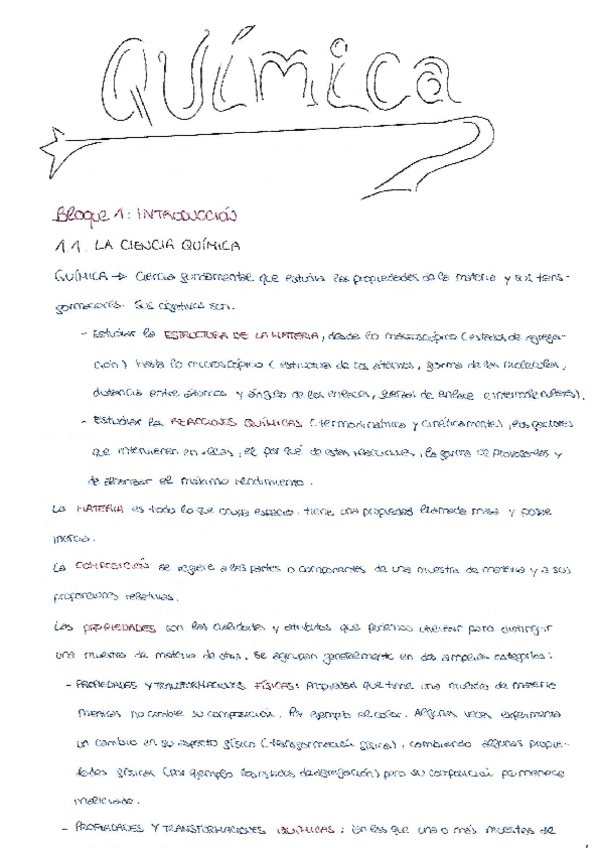 QUÍMICA
Bloque 1: INTRODUCCIÓN
1.1. LA CIENCIA QUÍMICA
QUÍMICA → Ciencia fundamental que estudia las propiedades de la materia y sus trans-
formaciones. Sus objetivos son:
- Estudiar la ESTRUCTURA DE LA MATERIA, desde lo macroscópico (estados de agrega-
ción) hasta lo microscópico (estructura de los átomos, forma de las moléculas,
distancia entre átomos y ángulo de los enlaces, fuerzas de enlace e intermoleculares).
- Estudiar las REACCIONES QUÍMICAS (termodinámica y cinéticamente), los factores
que intervienen en ellas, el por qué de estas reacciones, la forma de provocarlas y
de alcanzar el máximo rendimiento.
La MATERIA es todo lo que ocupa espacio, tiene una propiedad llamada masa y posee
inercia.
La COMPOSICIÓN se refiere a las partes o componentes de una muestra de materia y a sus
proporciones relativas.
Las PROPIEDADES son las cualidades y atributos que podemos utilizar para distinguir
una muestra de materia de otras. Se agrupan generalmente en dos amplias categorías:
- PROPIEDADES Y TRANSFORMACIONES FÍSICAS: Propiedad que tiene una muestra de materia
mientras no cambie su composición. Por ejemplo el color. Algunas veces experimenta
un cambio en su aspecto físico (transformación física), cambiando algunas propie-
dades físicas (por ejemplo los estados de agregación) pero su composición permanece
inalterada.
- PROPIEDADES Y TRANSFORMACIONES QUÍMICAS: En las que una o más muestras de